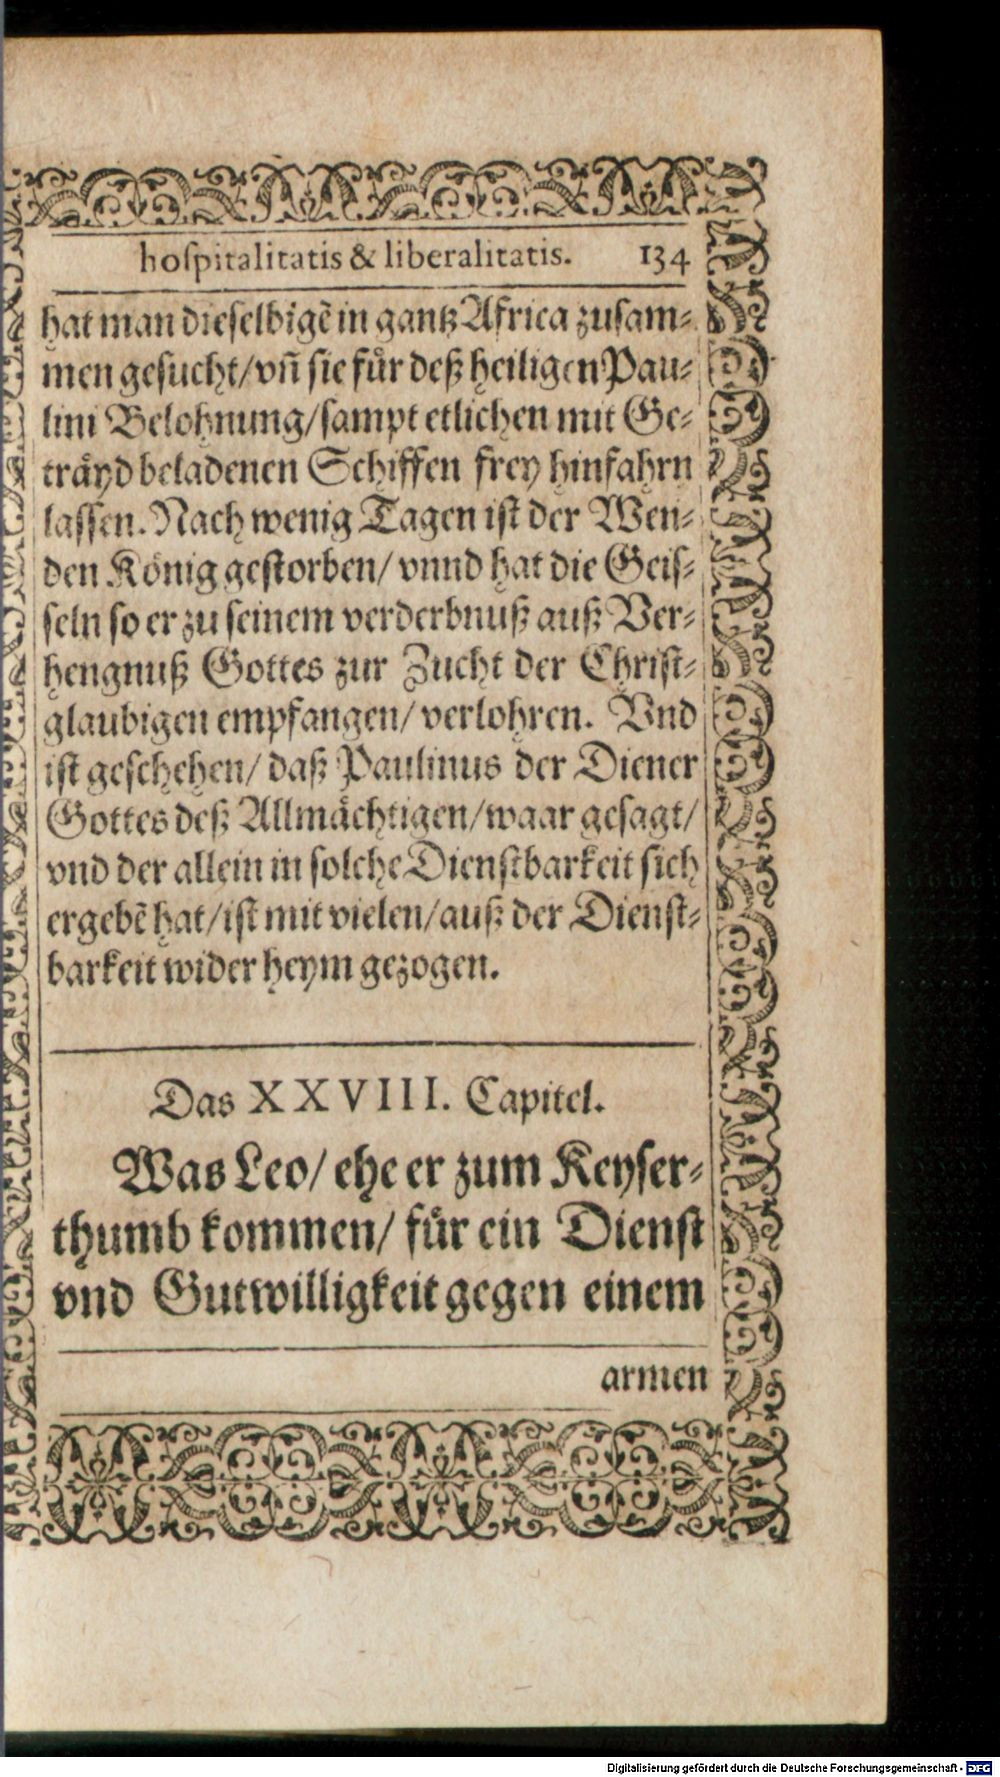 hoſpitalitatis & liberalitatis. 134
hat man dieſelbigẽ in gantz Africa zuſam⸗
men geſucht/ vñ ſie fuͤr deß heiligen Pau⸗
lini Belohnung/ ſampt etlichen mit Ge⸗
traͤyd beladenen Schiffen frey hinfahrn
laſſen. Nach wenig Tagen iſt der Wen⸗
den Koͤnig geſtorben/ vnnd hat die Geiſ⸗
ſeln ſo er zu ſeinem verderbnuß auß Ver⸗
hengnuß Gottes zur Zucht der Chriſt⸗
glaubigen empfangen/ verlohren. Vnd
iſt geſchehen/ daß Paulinus der Diener
Gottes deß Allmaͤchtigen/ waar geſagt/
vnd der allein in ſolche Dienſtbarkeit ſich
ergebẽ hat/ iſt mit vielen/ auß der Dienſt⸗
barkeit wider heym gezogen.
Das XXVIII. Capitel.
Was Leo/ ehe er zum Keyſer⸗
thumb kommen/ fuͤr ein Dienſt
vnd Gutwilligkeit gegen einem
armen
Digitalisierung gefördert durch die Deutsche Forschungsgemeinschaft - DFG